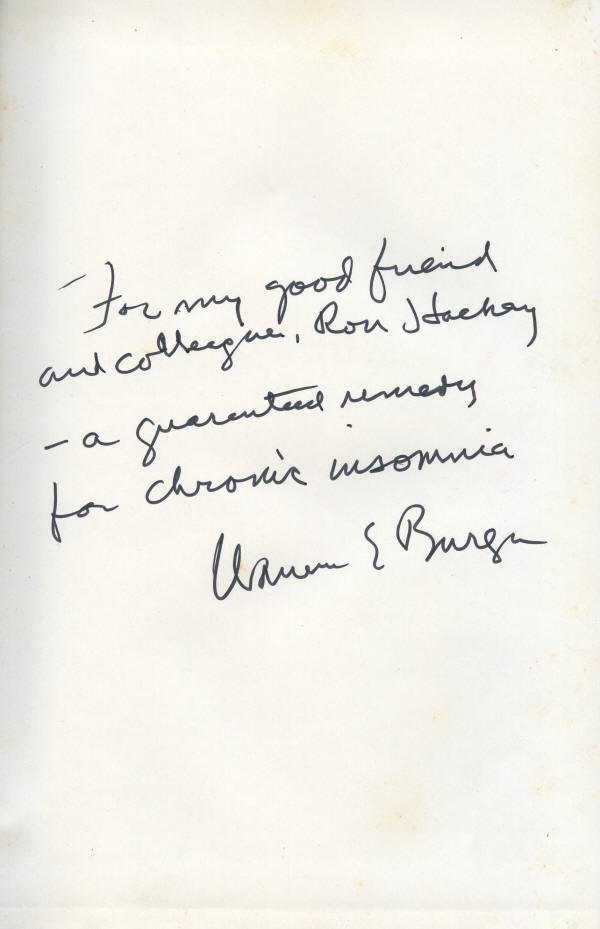 For my good friend
and colleague, Ron Hackey
- a guaranteed remedy
for chronic insomnia
Warren E Burger